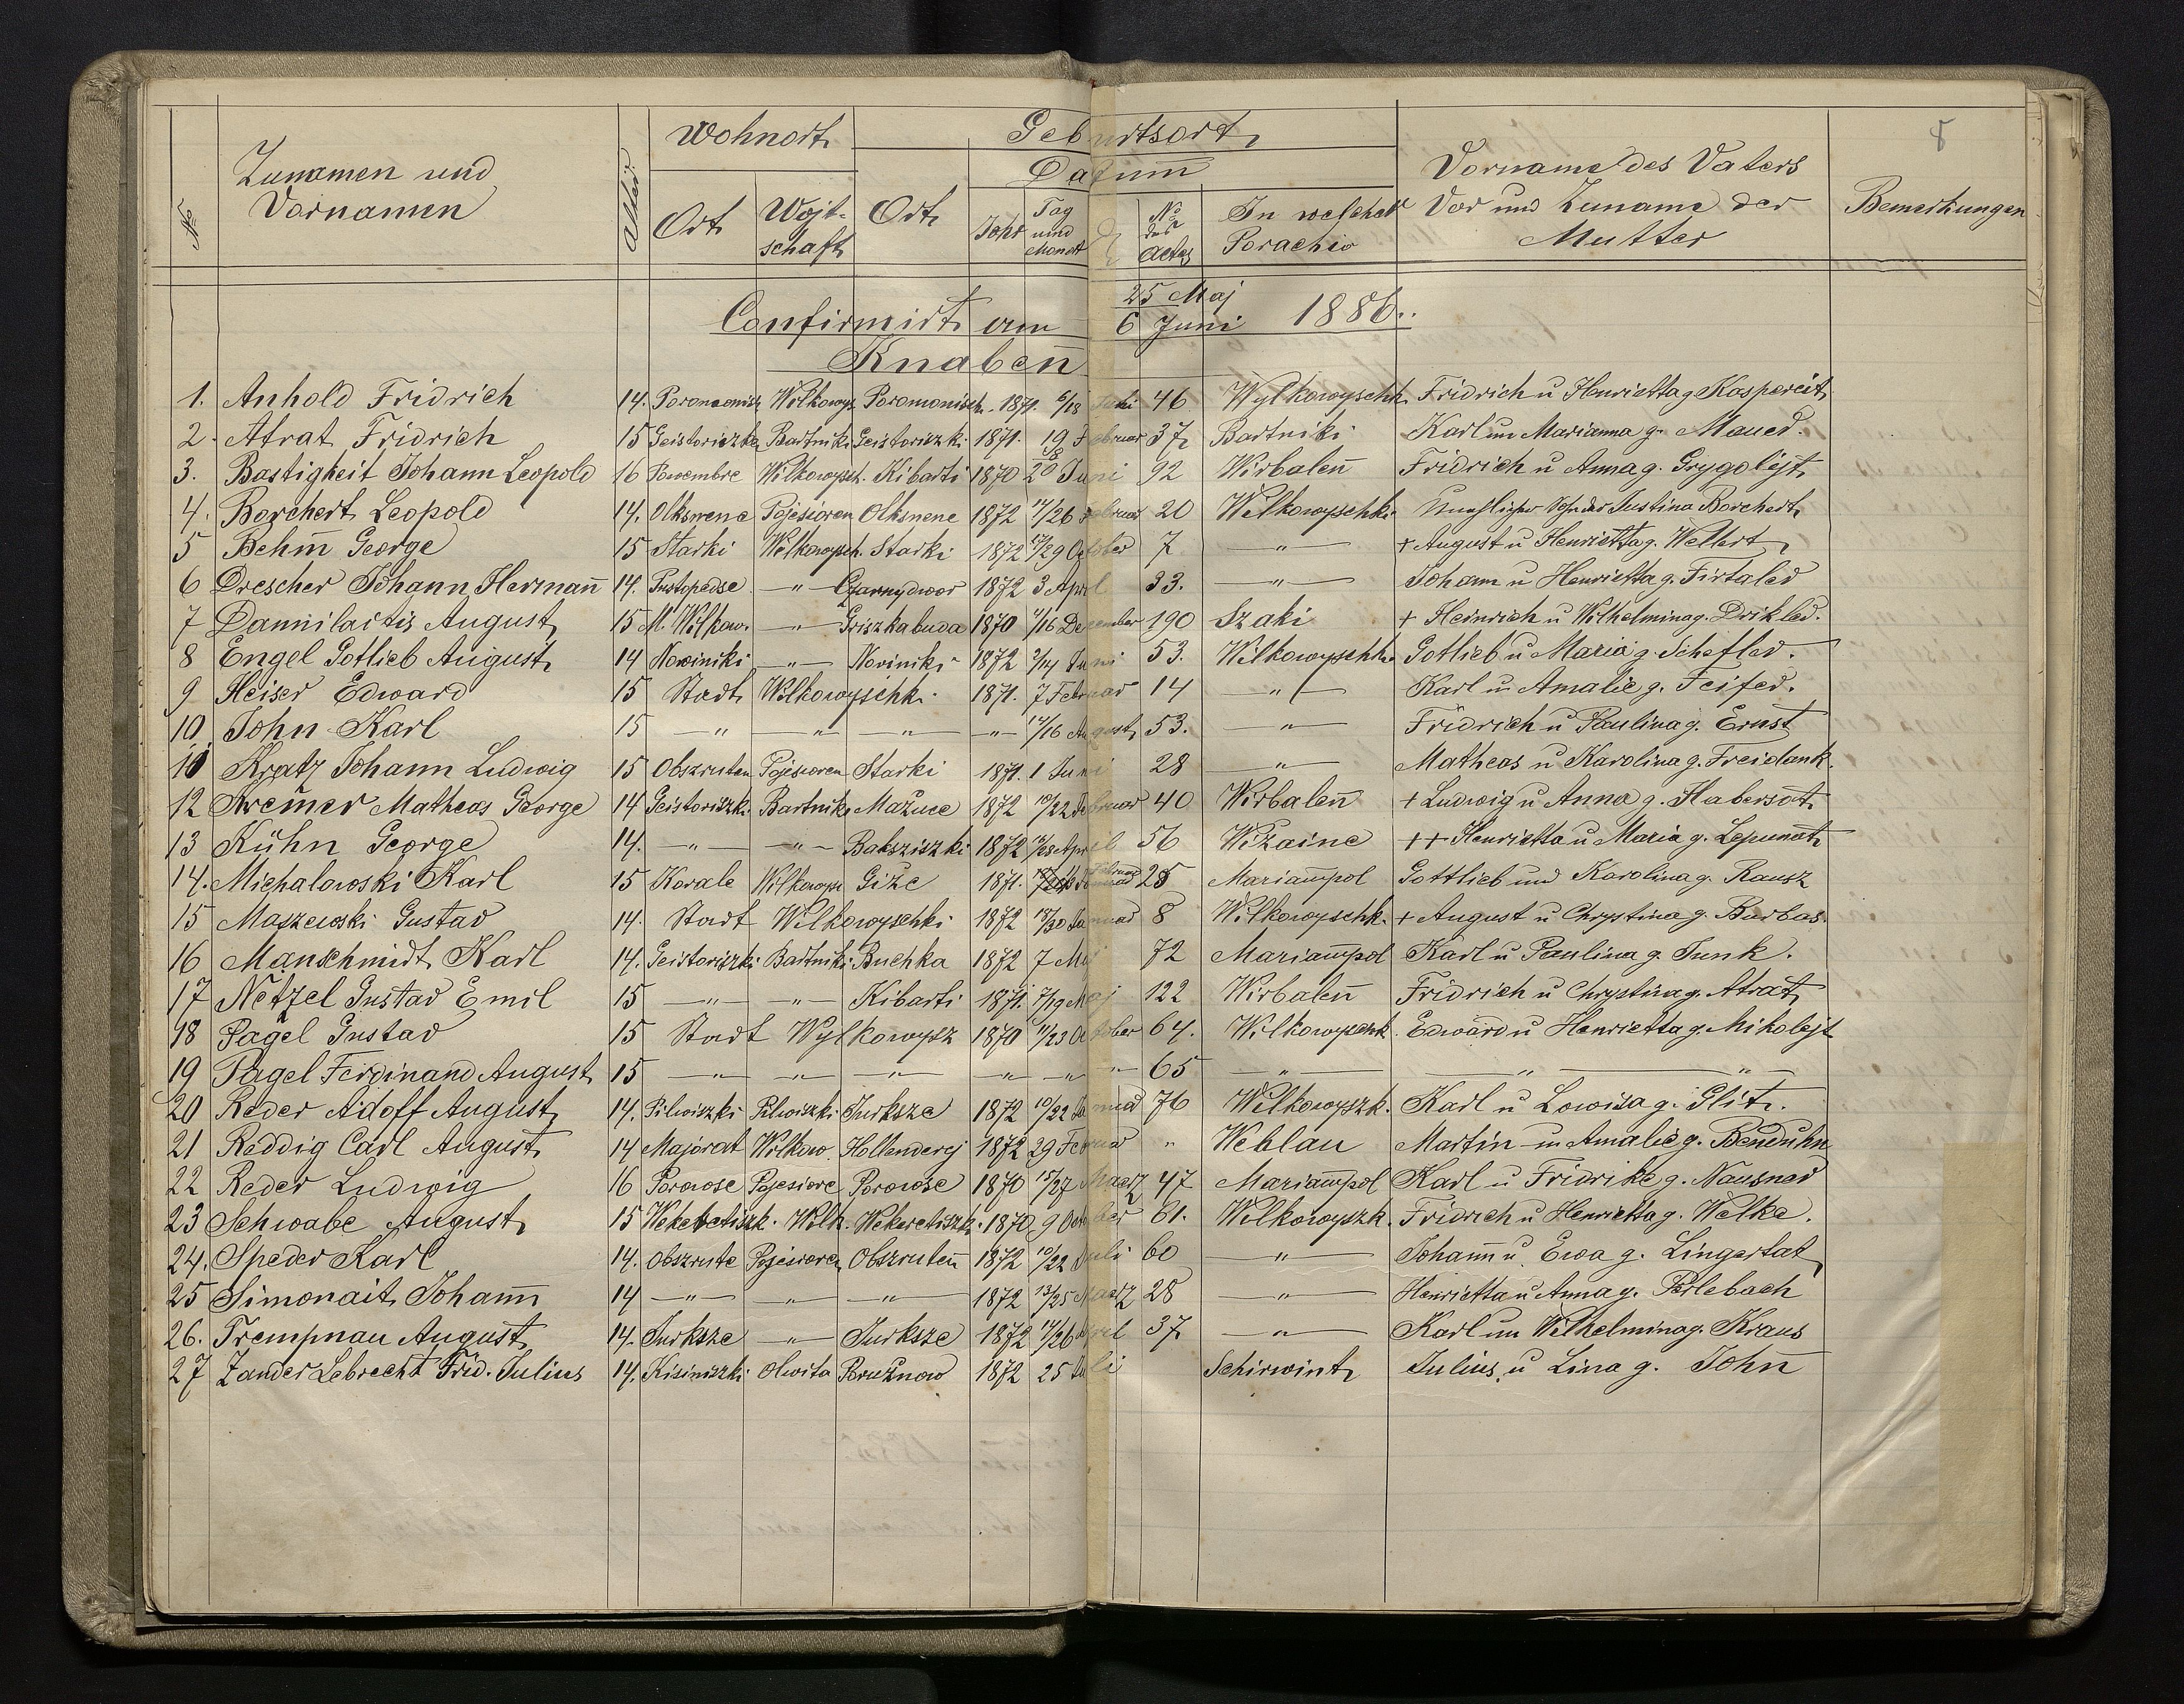 8
Wohnort Geburtsort
Zunamen und Datum Vorname des Vaters
No Vornamen Alter Ort Wojt- Ort Jahr Tag No In welcher Vor und Zuname der Bemerkungen
schaft und des Parachie Mutter
Monat Actes
Confirmirt am 25 Maj
6 Juni 1886.
Knaben
1. Anhold Fridrich 14. Wilkowys. 1871. 6/18 46 Wylkowyschk. Fridrich u Henrietta g. Kaspereit
2. Atrat Fridrich 15 Geistoriszke Bartniki Geistoriszki 1871. 19 Februar 37 Bartniki Karl un Marianna g. Mauer.
3. Bastigkeit Johann Leopold 16 Wilkowysch. Kibarti 1870 8/20 Juni 92 Wirbalen Fridrich u Anna g. Grygolejt
4. Borchert Leopold 14. Olksnene Pojesioren Olksnene 1872 14/26 Februar 20 Wilkowyschki Justina Borchert
5 Behm George 15 Starki Wilkowysch. Starki 1872 17/29 October 7 — " — + August u Henrietta g. Wellert
6 Drescher Johann Hermann 14. Pustopedse — " — Czarnydwor 1872 3 April 33. — " — Johann u Henrietta g. Firtaler
7 Dannilartis August 15 M. Wilkow. — " — Griszkabuda 1870 4/16 December 190 Szaki + Heinrich u Wilhelmina g. Drikler.
8 Engel Gotlieb August 14 Nowiniki — " — Noviniki 1872 2/14 Juni 53. Wilkowyschk. Gotlieb u Maria g. Schefler.
9 Heiser Edward 15 Stadt Wilkowyschk. 1871. 7 Februar 14 — " — Karl u Amalie g. Feifer.
10 John Karl 15 — " — — " — — " — — " — 4/16 August 53. — " — Fridrich u Paulina g. Ernst
11 Kratz Johann Ludwig 15 Obszruten Pojesioren Starki 1871. 1 Juni 28 — " — Matheas u Karolina g. Freidank.
12 Kremer Matheas George 14 Geistoriszki Bartniki Mažuce 1872 10/22 Februar 40 Wirbalen + Ludwig u Anna g. Habersat
13 Kühn George 14. — " — — " — Bakszizki 1872 16/28 April 56 Wižaine ++ Henrietta u Maria g. Lepunat
14. Michalowski Karl 15 Korale Wilkowys Giže 1871. Februar 25 Mariampol Gottlieb und Karolina g. Rausz
15 Maszewski Gustav 14. Stadt Wilkowyschki 1872 18/30 Januar 8 Wilkowyschk. + August u Chrystina g. Barbas.
16 Manschmidt Karl 14. Geistoriszki Bartniki Buchka 1872 7 Mej 72 Mariampol Karl u Paulina g. Junk.
17 Netzel Gustav Emil 15 — " — — " — Kibarti 1871. 7/19 Maj 122 Wirbalen Fridrich u Chrystina g. Atrat
18 Pagel Gustav 15 Stadt Wylkowysz 1870 11/23 October 64. Wilkowyschk. Edward u Henrietta g. Mikolejt
19 Pagel Ferdinand August 15 — " — — " — — " — — " — — " — " 65 — " — — " — — " —
20 Reder Adolf August 14. Pilwiszki Pilwiszki Jurksze 1872 10/22 Januar 76 Wilkowyszk. Karl u Lowisa g. Glit.
21 Reddig Carl August 14 Majorat Wilkow. Hollendery 1872 29 Februar " Wehlau Martin u Amalie g. Benduhn
22 Reder Ludwig 16 Porowse Pojesiore Porowse 1870 15/27 Maerz 47 Mariampol Karl u Fridrike g. Nausner
23 Schwabe August 15 Weketretiszk. Wilk. Wekeretiszk. 1870 9 October 61. Wilkowyszk. Fridrich u Henrietta g. Welke.
24. Speder Karl 14. Obszrute Pojesioren Obszruten 1872 10/22 Juli 60 — " — Johann u. Ewa g. Lingertat
25 Simonait Johann 14 — " — — " — — " — 1872 13/25 Maerz 28 — " — Henrietta u Anna g. Perlebach
26. Trempnau August 14. Jurksze — " — Jurksze 1872 14/26 April 37 — " — Karl un Wilhelmina g. Kraus
27 Zander Lebrecht Frid. Julius 14. Kisiniszki Olwita Bružnow 1872 25 Juli Schirwint Julius u Lina g. John